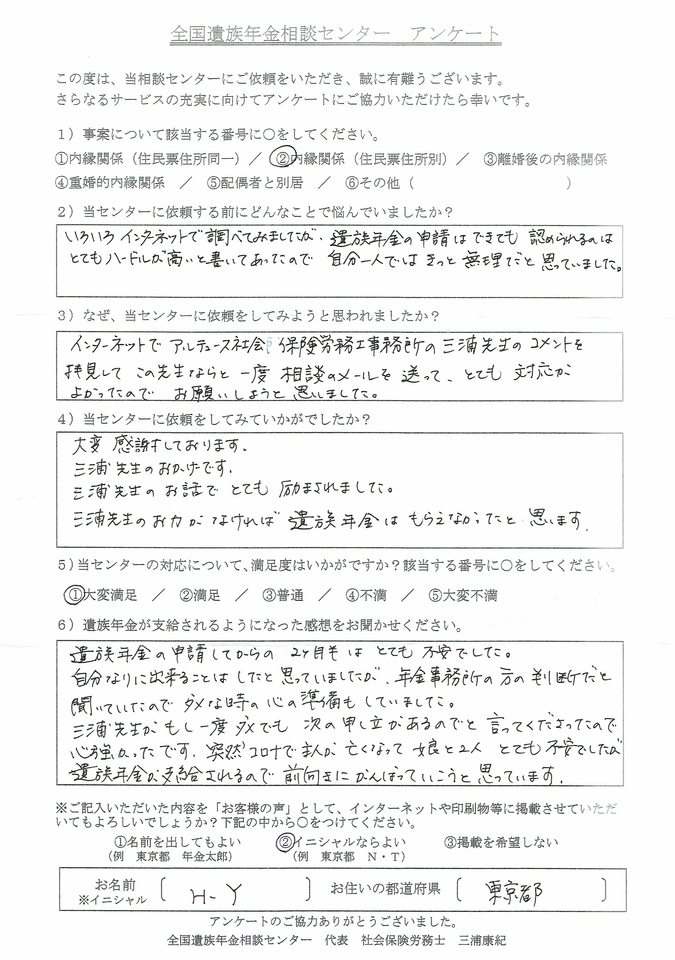 全国遺族年金相談センター　アンケート
この度は、当相談センターにご依頼をいただき、誠に有難うございます。
さらなるサービスの充実に向けてアンケートにご協力いただけたら幸いです。
1）事案について該当する番号に○をしてください。
①内縁関係（住民票住所同一）／　②内縁関係（住民票住所別）／　③離婚後の内縁関係
④重婚的内縁関係　／　⑤配偶者と別居　／　⑥その他（　　　　　　　　　）
2）当センターに依頼する前にどんなことで悩んでいましたか？
いろいろインターネットで調べてみましたが、遺族年金の申請はできても 認められるのは
とてもハードルが高いと書いてあったので 自分一人では きっと 無理だと 思っていました。
3）なぜ、当センターに依頼をしてみようと思われましたか？
インターネットで アルテュース社会保険労務士事務所の三浦先生の コメントを
拝見して この先生ならと 一度 相談のメールを 送って、とても 対応が
よかったので お願いしようと 思いました。
4）当センターに依頼をしてみていかがでしたか？
大変 感謝しております。
三浦先生のおかげです。
三浦先生の お話で とても 励まされました。
三浦先生のお力が なければ 遺族年金は もらえなかったと 思います。
5）当センターの対応について、満足度はいかがですか？該当する番号に○をしてください。
①大変満足　／　②満足　／　③普通　／　④不満　／　⑤大変不満
6）遺族年金が支給されるようになった感想をお聞かせください。
遺族年金の申請してからの 2ヶ月半は とても 不安でした。
自分なりに出来ることは したと 思っていましたが、年金事務所の方の 判断だと
聞いていたので ダメな時の 心の準備も していました。
三浦先生が もし一度 ダメでも 次の 申し立が あるのでと 言ってくださったので
心強かったです。突然コロナで主人が 亡くなって 娘と2人 とても 不安でしたが
遺族年金が支給されるので 前向きに がんばっていこうと 思っています。
※ご記入いただいた内容を「お客様の声」として、インターネットや印刷物等に掲載させていただ
いてもよろしいでしょうか？下記の中から○をつけてください。
①名前を出してもよい　　②イニシャルならよい　　③掲載を希望しない
（例　東京都　年金太郎）　　（例　東京都　N・T）
お名前　〔　H-Y　〕　お住いの都道府県　〔　東京都　〕
※イニシャル
アンケートのご協力ありがとうございました。
全国遺族年金相談センター　代表　社会保険労務士　三浦康紀